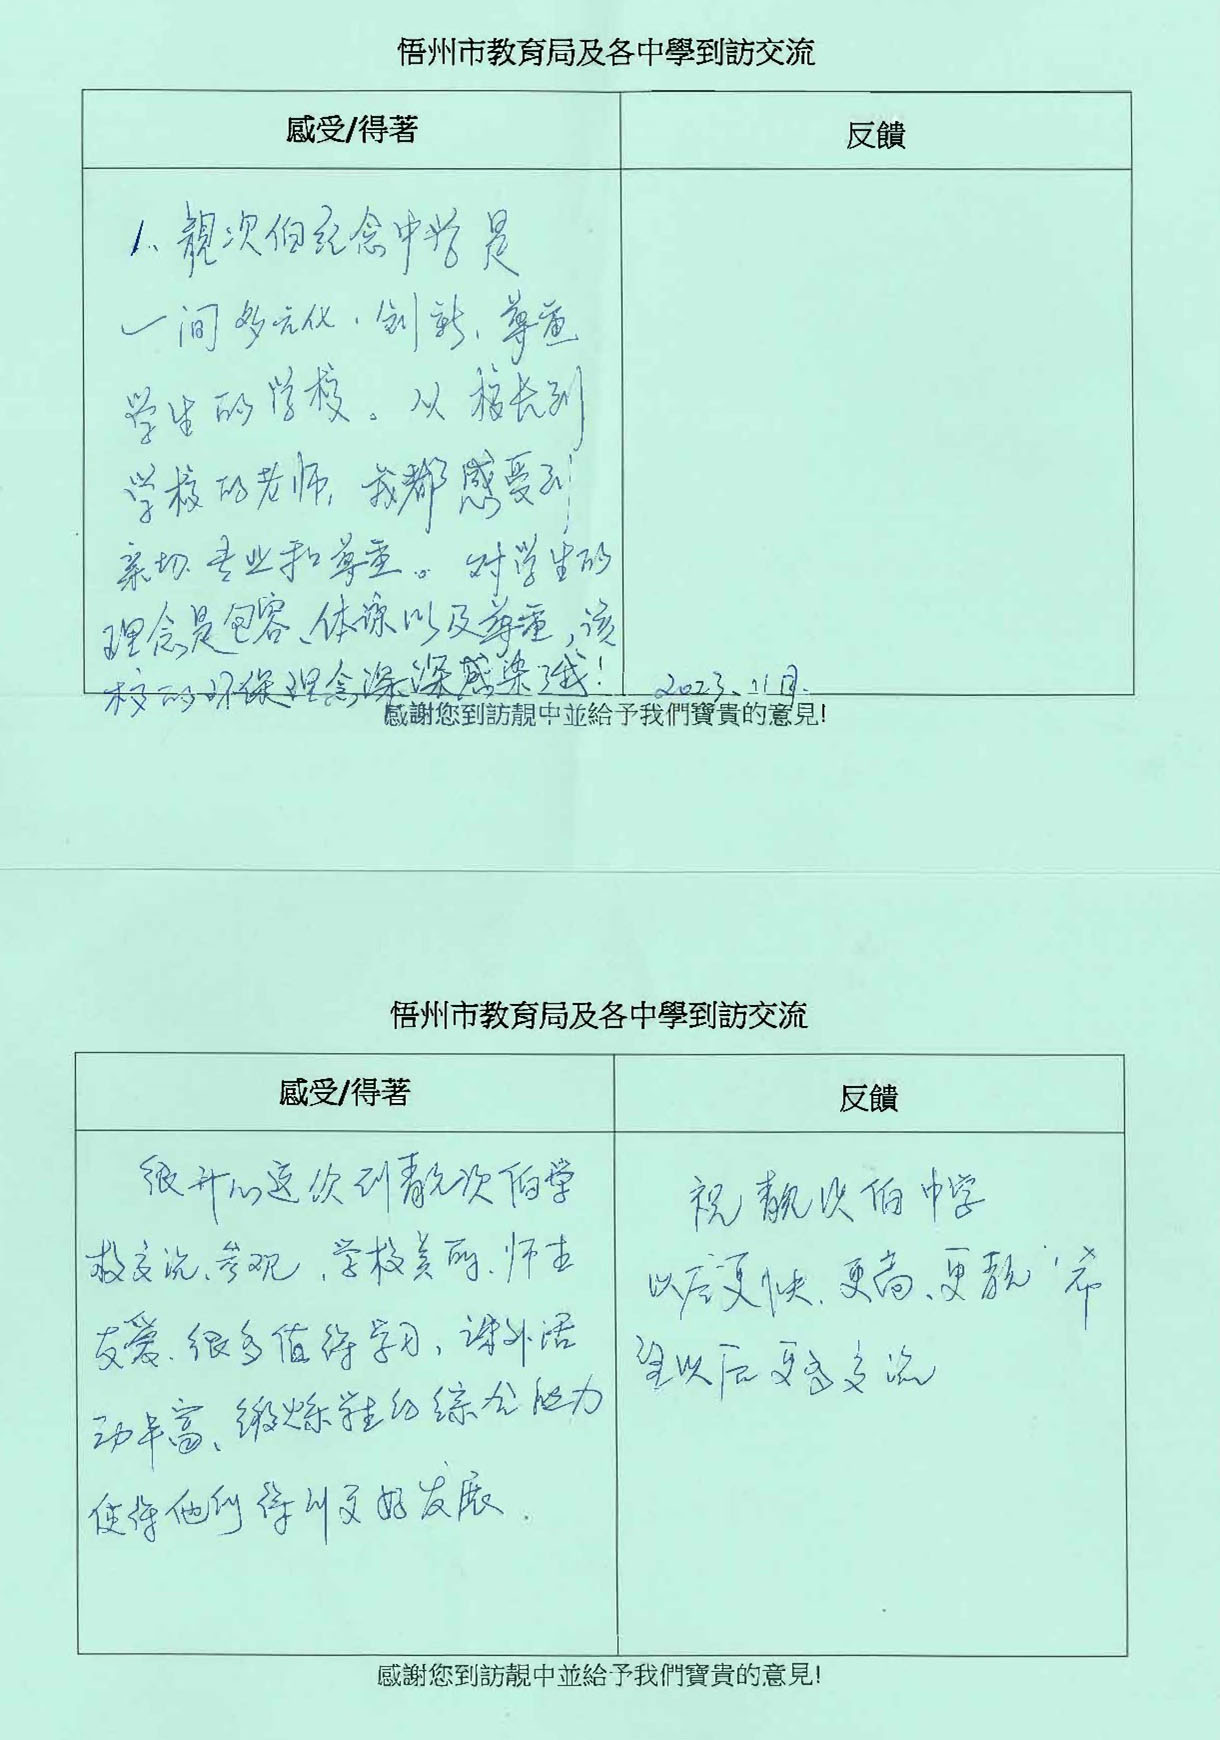 悟州市教育局及各中學到訪交流
感受/得著
反饋
1、靚次伯纪念中学是
一间多元化、创新、尊重
学生的学校。从校长到
学校的老师，我都感受到
亲切、专业和尊重。对学生的
理念是包容、体谅以及尊重，该
校的环保理念深深感染了我！
2023、11月.
感謝您到訪靚中並給予我們寶貴的意見!
悟州市教育局及各中學到訪交流
感受/得著
反饋
很开心这次到靓次伯学
校交流、参观，学校美丽、师生
友爱、很多值得学习，课外活
动丰富、锻炼学生的综合能力
使得他们得到更好发展.
祝靓次伯中学
以后更快、更高、更靓，希
望以后更多交流
感謝您到訪靚中並給予我們寶貴的意見!